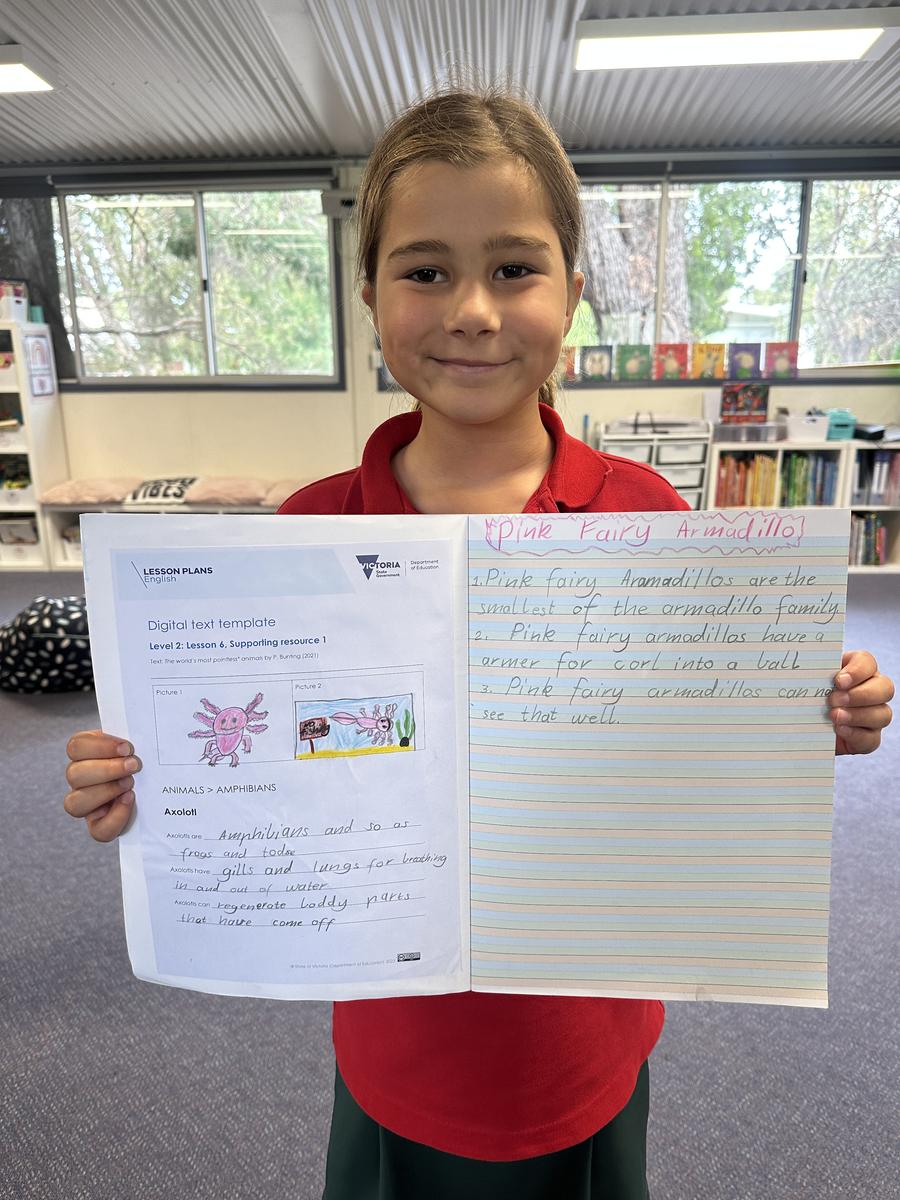 VIBES
LESSON PLANS
English
VICTORIA
State
Government
Department
of Education
Digital text template
Level 2: Lesson 6, Supporting resource 1
Text: The world's most pointless* animals by P. Bunting (2021)
Picture 1
Picture 2
ANIMALS > AMPHIBIANS
Axolotl
Axolotls are Amphibians and so as
frogs and todse
Axolotls have gills and lungs for breathing
in and out of water
Axolotls can regenerate boddy parts
that have come off
© State of Victoria (Department of Education)
Pink Fairy Armadillo
1. Pink fairy Aramadillos are the
smallest of the armadillo family
2. Pink fairy armadillos have a
armer for corl into a ball
3. Pink fairy armadillos can no
see that well.